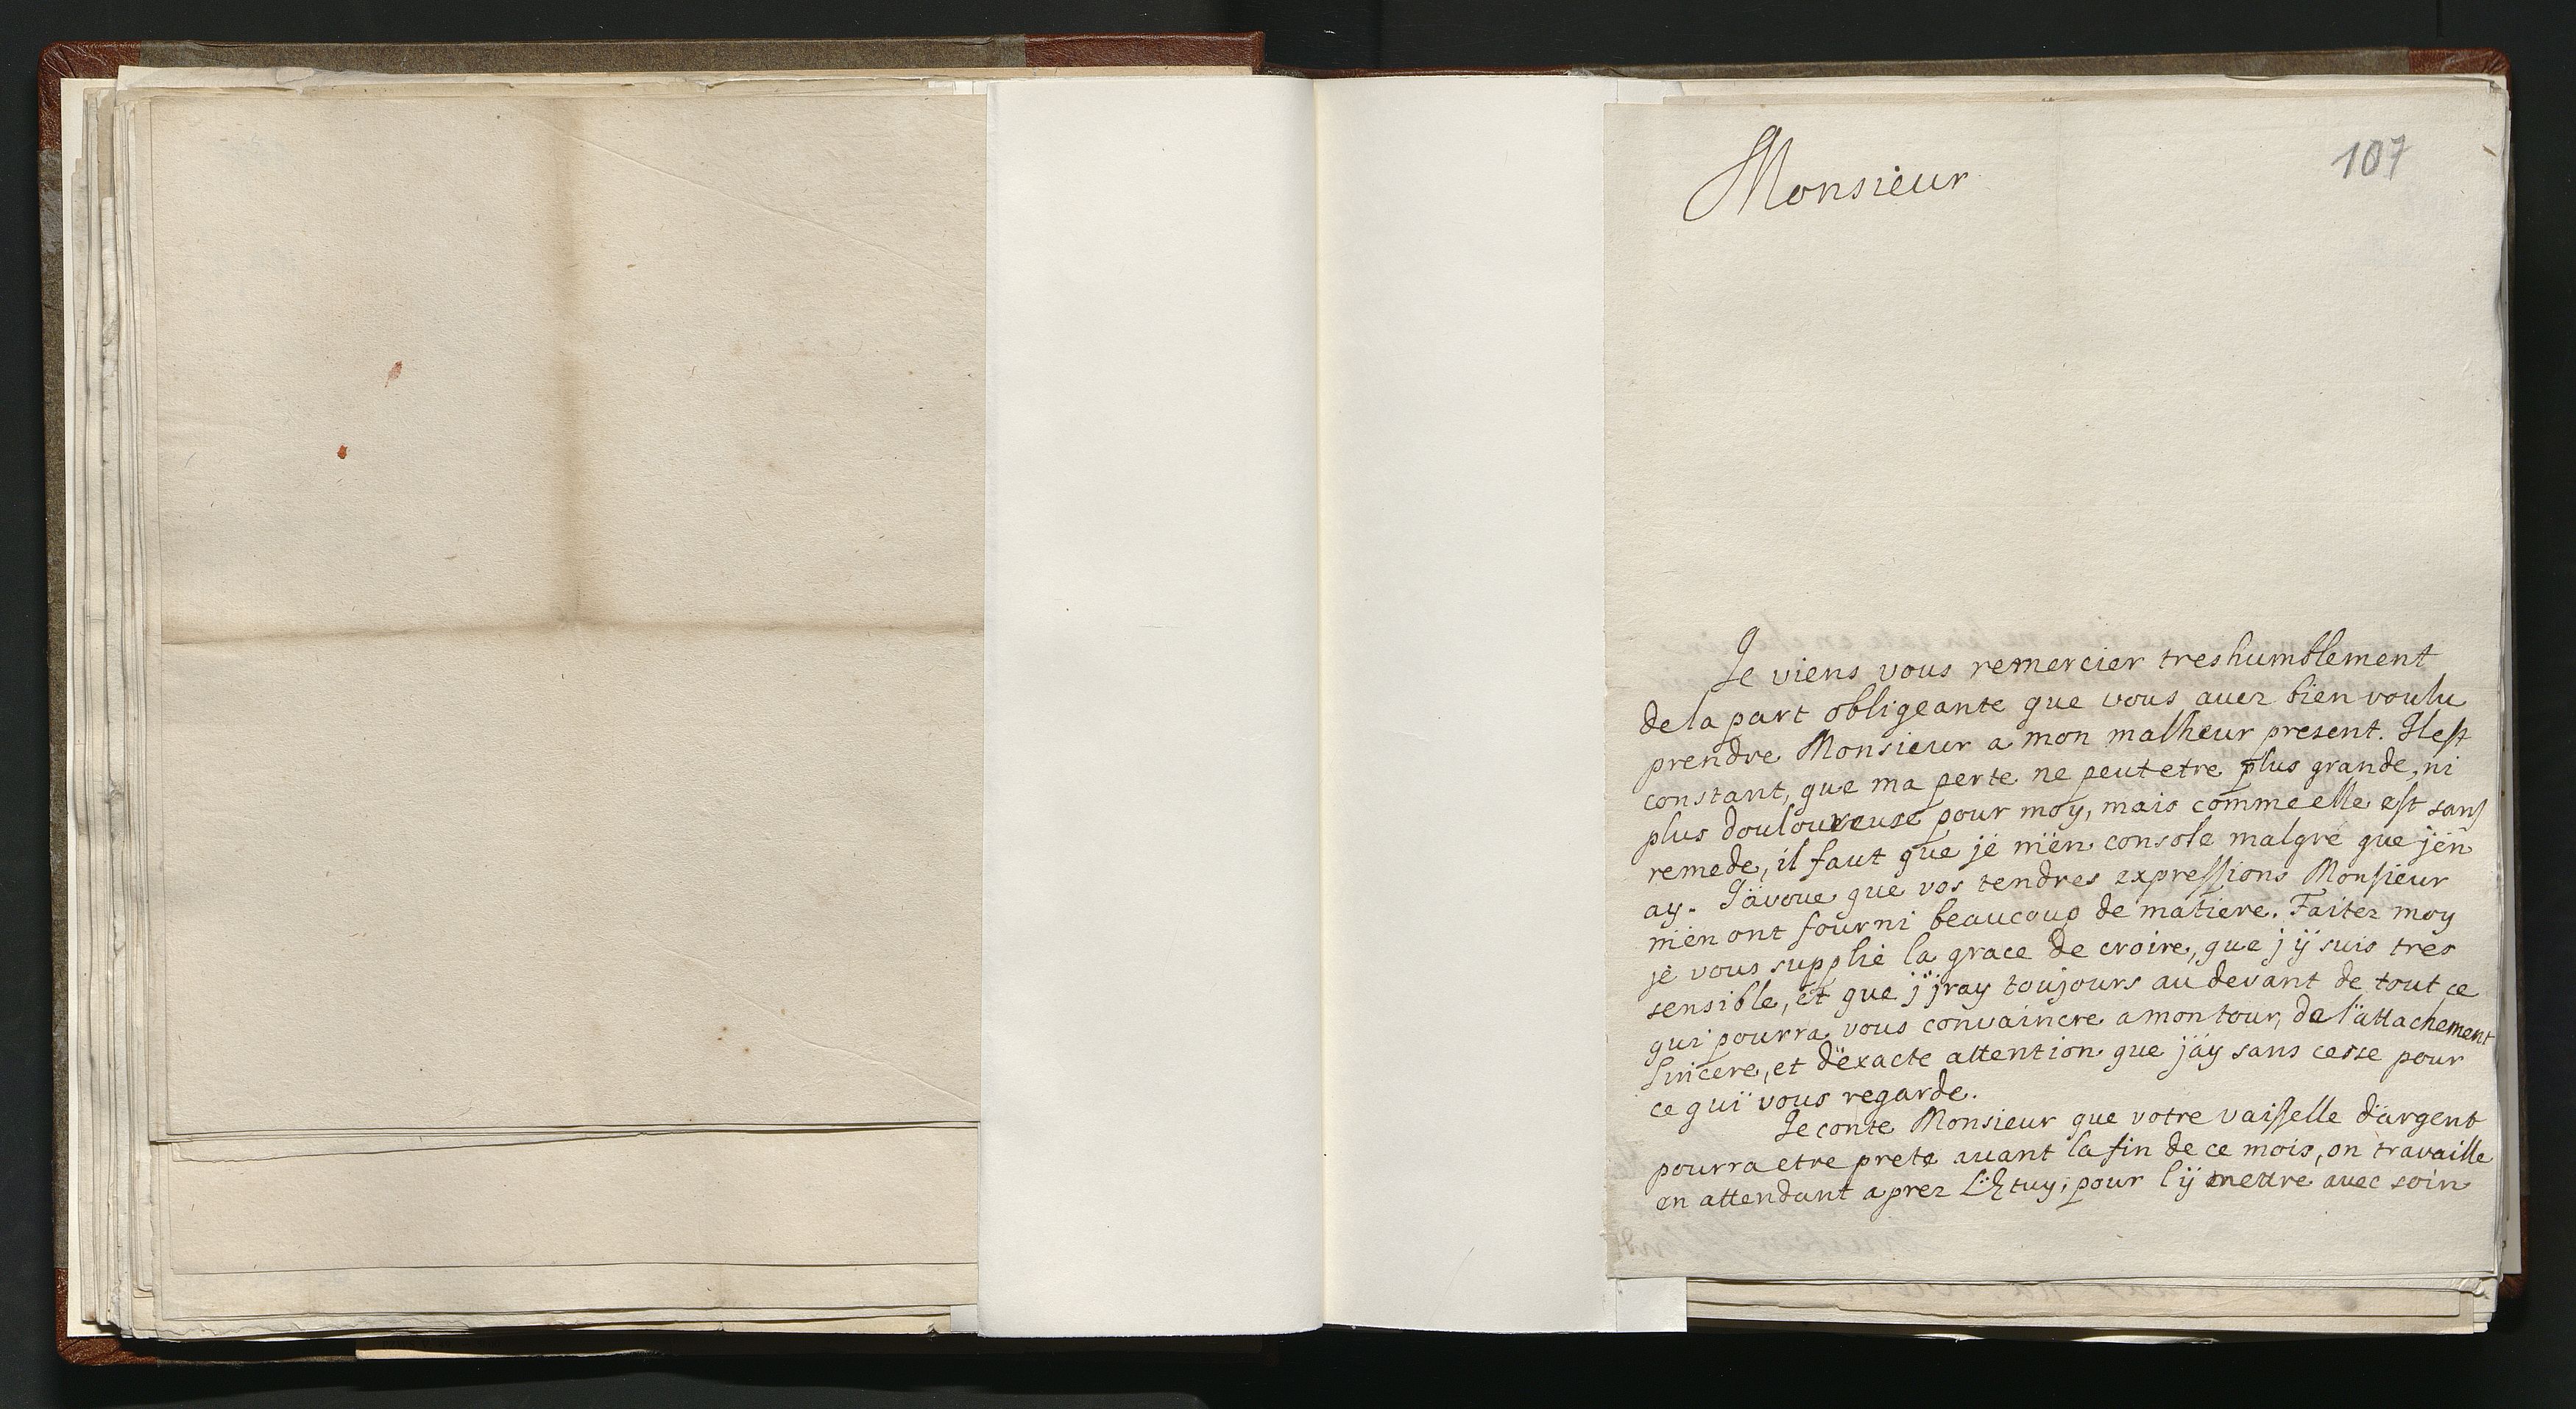 107
Monsieur
Je viens vous remercier treshumblement
de la part obligeante que vous avez bien voulu
prendre Monsieur a mon malheur present. Il est
constant, que ma perte ne peut etre plus grande, ni
plus douloureuse pour moy, mais comme elle est sans
remede, il faut que je m'en console malgré que j'en
ay. J'avoue que vos tendres expressions Monsieur
m'en ont fourni beaucoup de matiere. Faitez moy
je vous supplie la grace de croire, que j'ÿ suis tres
sensible, et que j'jray toujours au devant de tout ce
qui pourra vous convaincre a mon tour, de l'attachement
sincere, et d'exacte attention que j'ay sans cesse pour
ce qui vous regarde.
Je conte Monsieur que votre vaisselle d'argent
pourra etre prete avant la fin de ce mois, on travaille
en attendant aprez L'Etuy, pour l'ÿ mettre avec soin